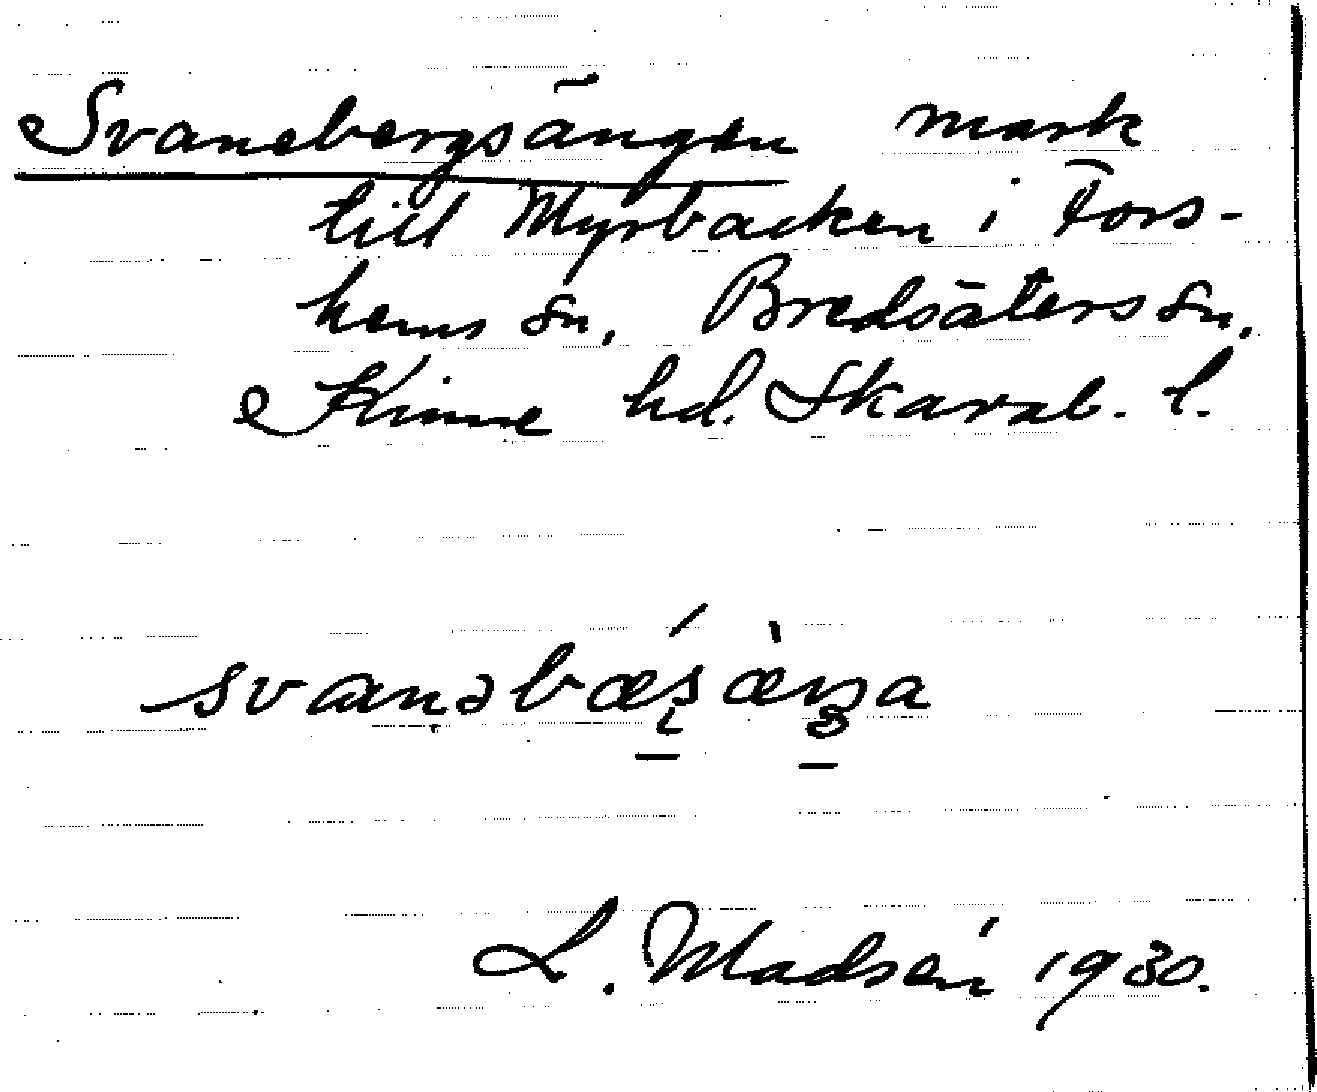 Svanebergsängen mark
till Myrbacken i Fors-
hems sn, Bredsäters sn,
Kinne hd. Skarab. l.
svanəbæ̀ṣæŋa
L. Madsén 1930.